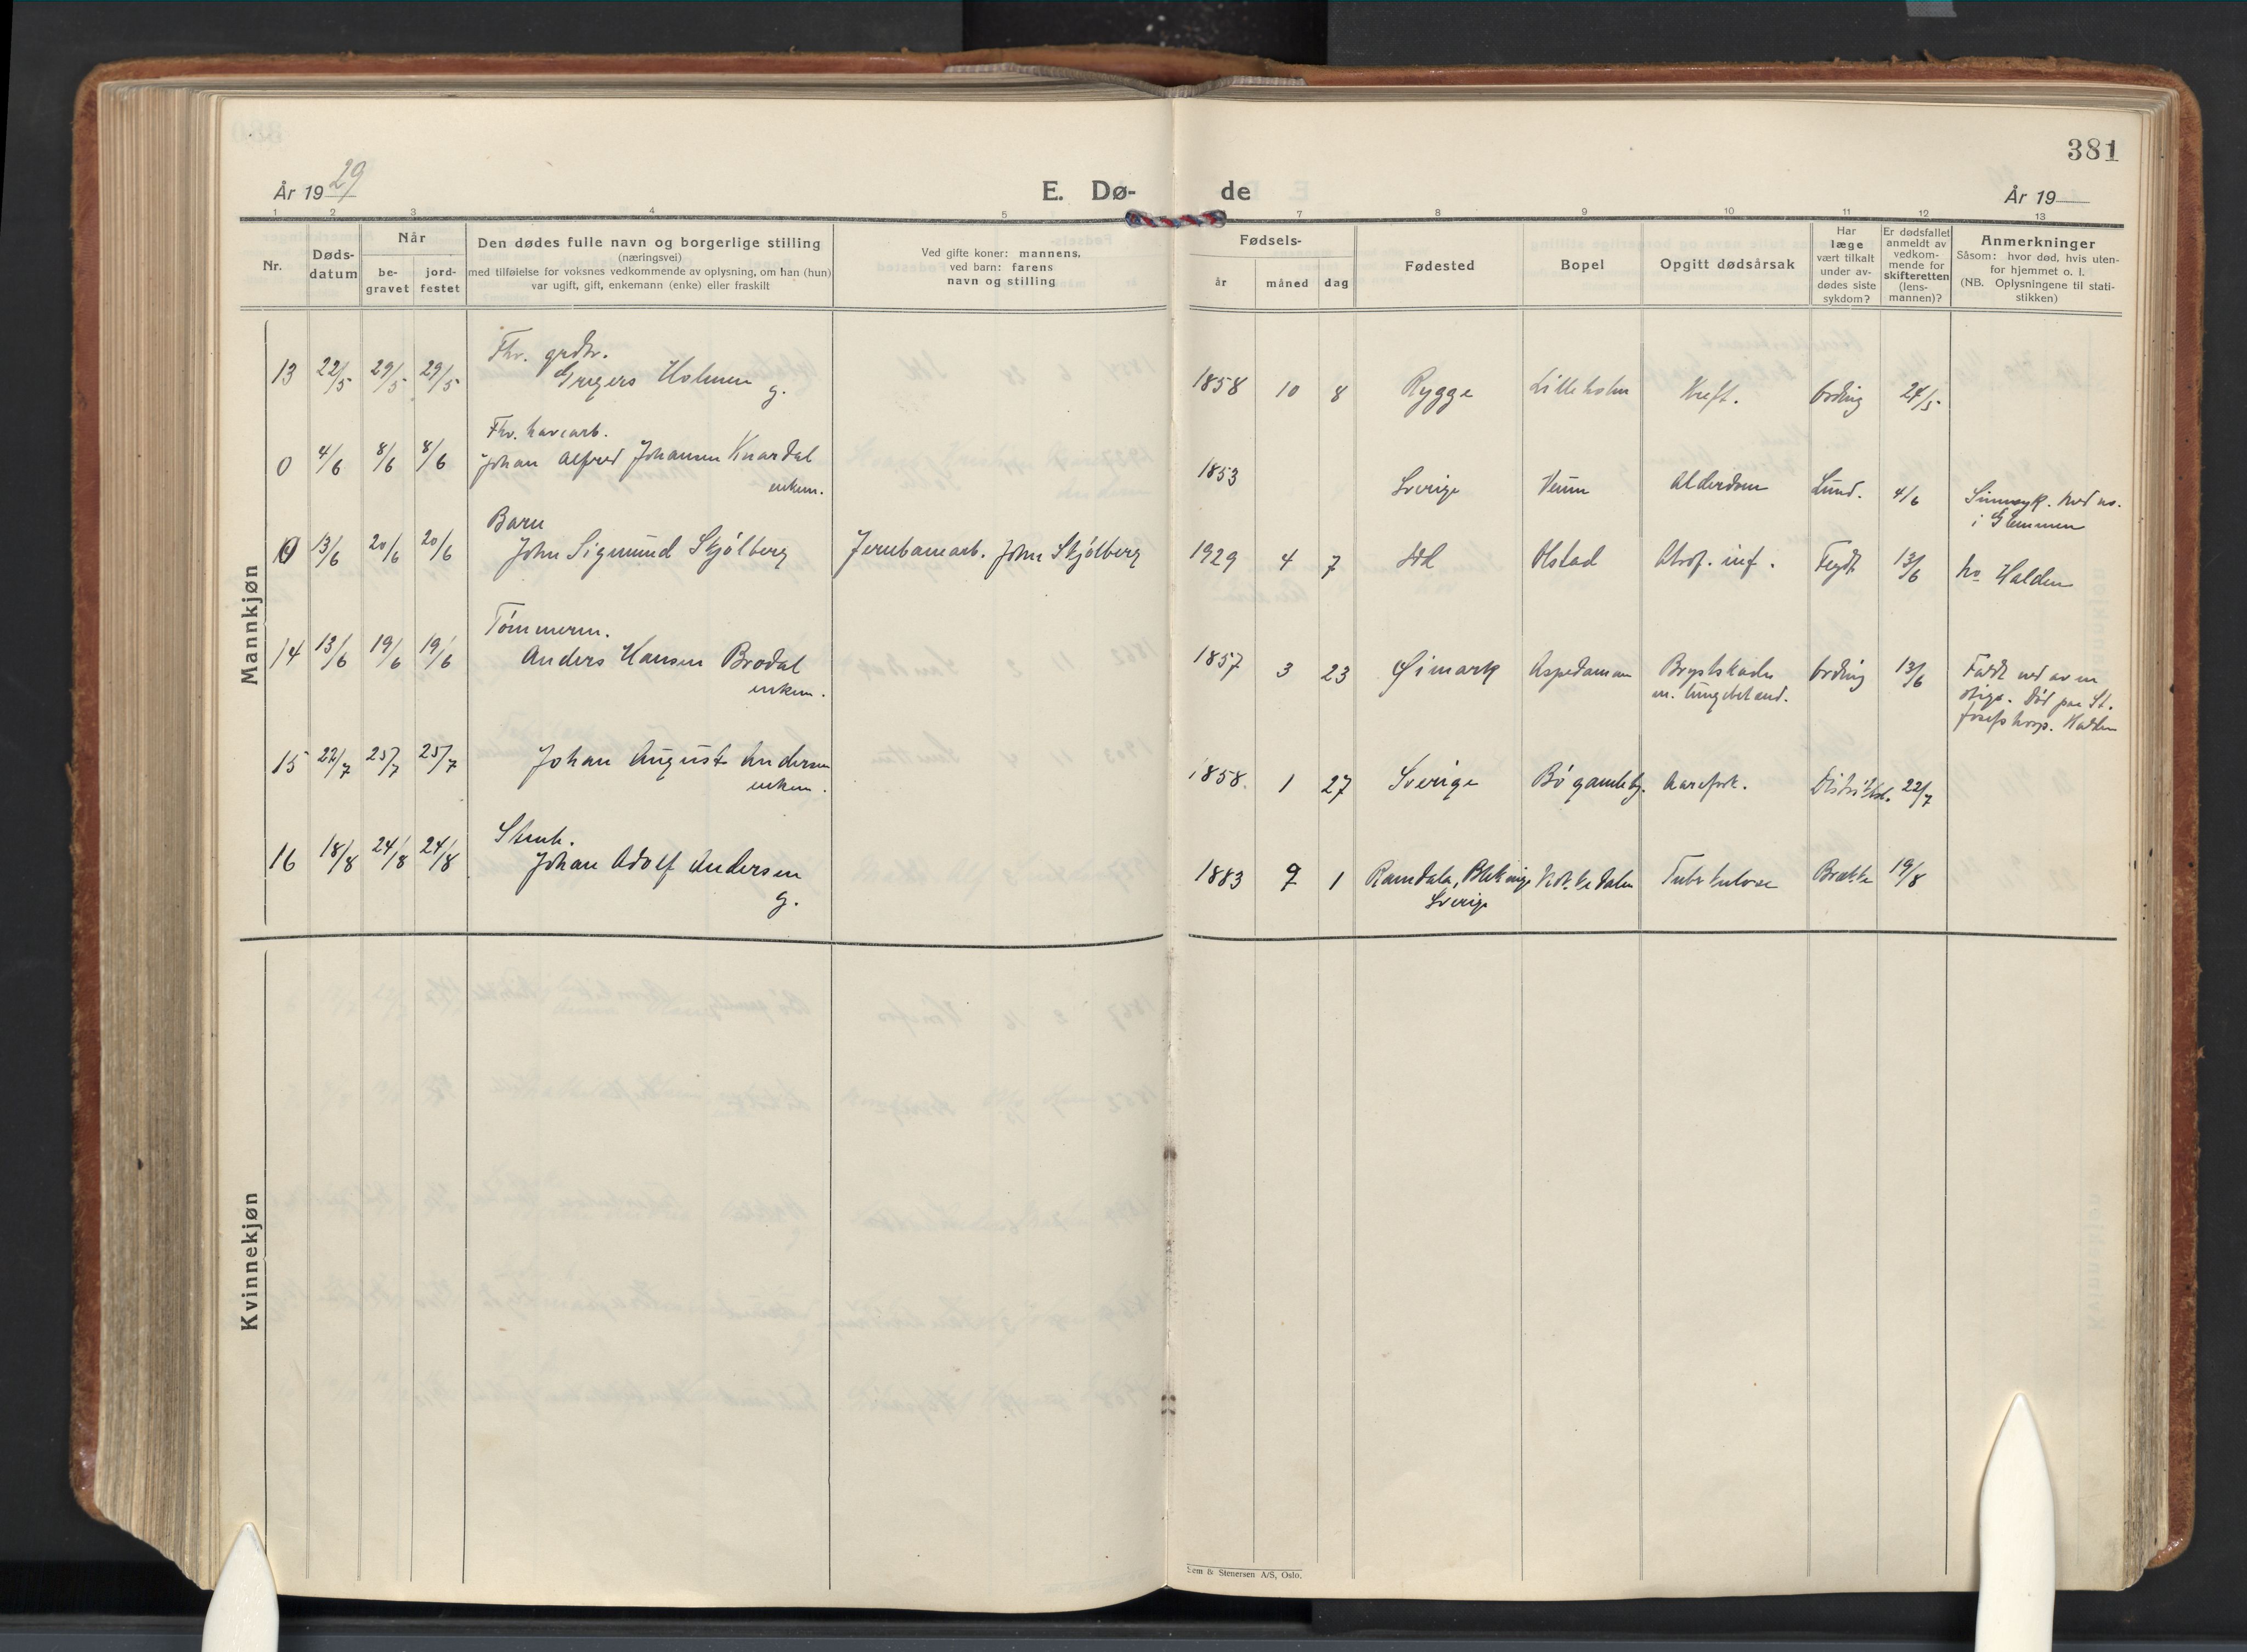 381
År 1929
E. Dø-
de
År 19
1 2 3 4 5 7 8 9 10 11 12 13
Nr.
Døds-
datum
Når
be-
gravet
jord-
festet
Den dødes fulle navn og borgerlige stilling
(næringsvei)
med tilføielse for voksnes vedkommende av oplysning, om han (hun)
var ugift, gift, enkemann (enke) eller fraskilt
Ved gifte koner: mannens,
ved barn: farens
navn og stilling
Fødsels-
år
måned
dag
Fødested
Bopel
Opgitt dødsårsak
Har
læge
vært tilkalt
under av-
dødes siste
sykdom?
Er dødsfallet
anmeldt av
vedkom-
mende for
skifteretten
(lens-
mannen)?
Anmerkninger
Såsom: hvor død, hvis uten-
for hjemmet o. l.
(NB. Oplysningene til stati-
stikken)
Mannkjøn
Fhv. grdbr.
13 22/5 29/5 29/5 Gregers Holmen g. 1858 10 8 Rygge Lilleholm Kreft. Ording 24/5
Fhv. havearb.
0 4/6 8/6 8/6 Johan Alfred Johansen Knardal
enkem. 1853 Sverige Veum Alderdom Lund. 4/6
i Glemmen
Barn
0 13/6 20/6 20/6 John Sigmund Skjølberg Jernbanearb. John Skjølberg 1929 4 7 Idd Olstad Atrof. inf. 13/6 Halden
Tømmerm.
14 13/6 19/6 19/6 Anders Hansen Brodal
enkem. 1857 3 23 Øimark Aspedammen Brystskade
m. lungebetænd. Ording 13/6 Faldt ned av en
stige. Død paa St.
Josefs hosp. Halden
15 22/7 25/7 25/7 Johan August Andersen
enkem. 1858 1 27 Sverige Bø gamleby. Aarefork. 22/7
16 18/8 24/8 24/8 Johan Adolf Andersen
g. 1883 9 1 Ramdala, Blekinge
Sverige Tuberkulose Brække 19/8
Kvinnekjøn
Sem & Stenersen A/S, Oslo.